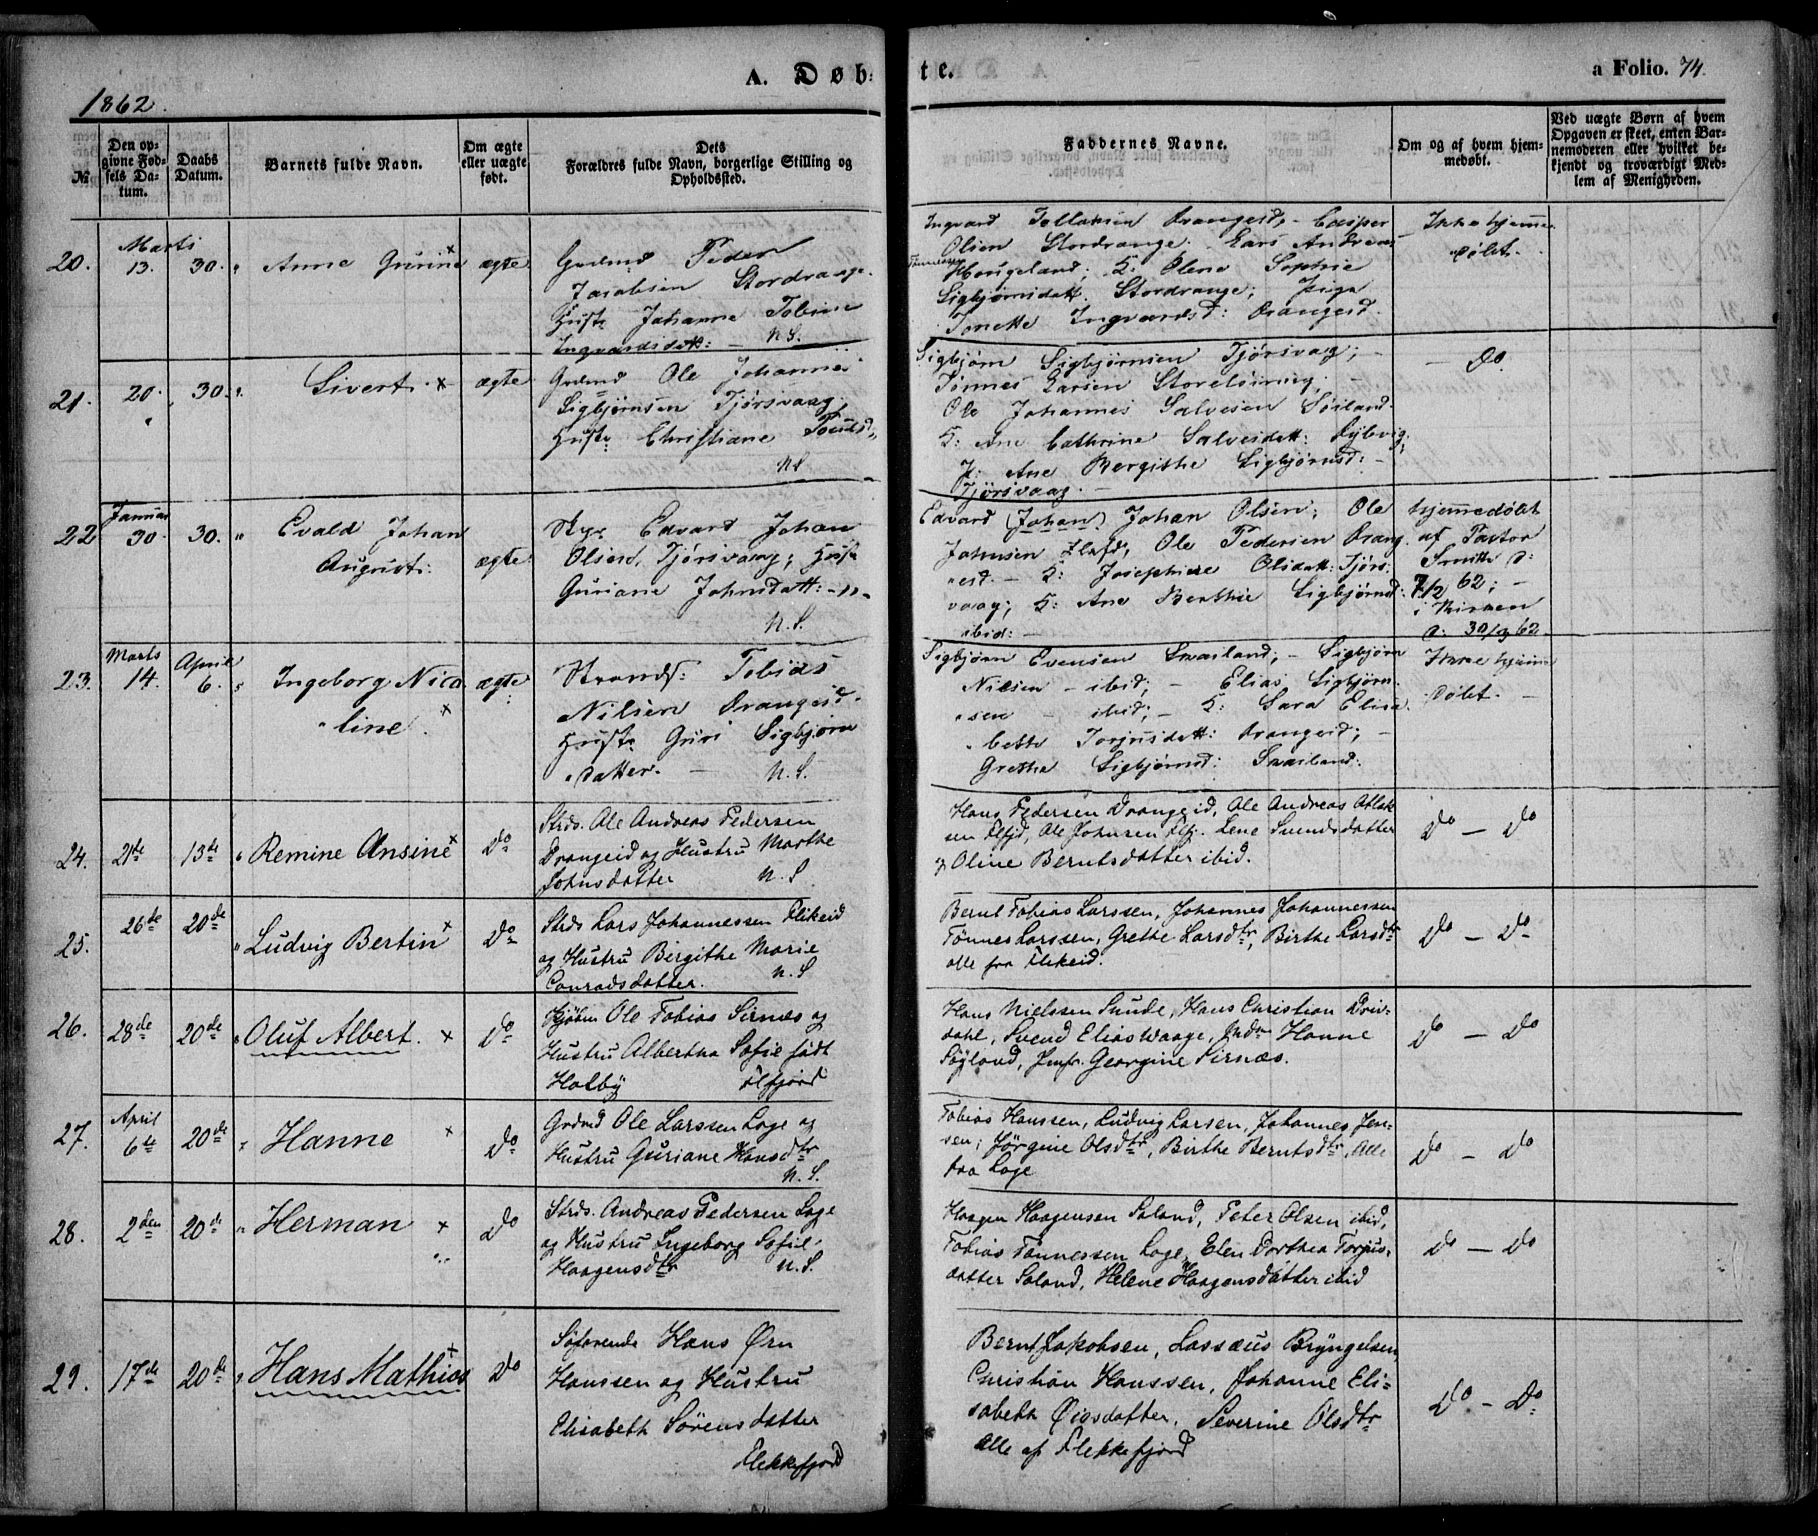 A. Døb-
te.
a Folio. 74.
1862.
№
Den op-
givne Fød-
sels Da-
tum.
Daabs
Datum.
Barnets fulde Navn.
Om ægte
eller uægte
født.
Dets
Forældres fulde Navn, borgerlige Stilling og
Opholdssted.
Faddernes Navne.
Om og af hvem hjem-
medøbt.
Ved uægte Børn af hvem
Opgaven er skeet, enten Bar-
nemoderen eller hvilket be-
kjendt og troværdigt Med-
lem af Menigheden.
20.
Marts
13.
30.
Anne Gurine
ægte
Grdmd Peder
Jacobsen Stordrange.
Hustr Johanne Tobine
Ingvardsdatt: — N.S.
Ingvard Tollaksen Drangeid, — Casper
Olsen Stordrange. Lars Andreas
Hougeland; K: Olene Sophie
Sigbjørnsdatt. Stordrange; Pige
Tonette Ingvardsd: Drangeid.
Ikke hjemme
døbt.
21.
20.
30.
Sivert
ægte
Grdmd Ole Johannes
Sigbjørnsen Tjørsvaag,
Hustr Christiane
N.S.
Sigbjørn Sigbjørnsen Tjørsvaag; —
Tønnes Larsen
Ole Johannes Salvesen Søiland.
K: Ane Cathrine Salvesdatt:
P: Ane Bergithe Sigbjørnsd: —
Tjørsvaag. —
— Do.
22
Januar
30
30.
Evald Johan
August:
ægte
Edvard Johan
Olsen, Tjørsvaag; Hustr
Guriane Johnsdatt: —
N.S.
Edvard (Johan) Johan Olsen; Ole
Johnsen Flefd; Ole Pedersen Drang
eid. — K: Josephine Olsdatt: Tjørs-
vaag; K: Ane Berthie Sigbjørnsd:
ibid: —
Hjemmedøbt
af Pastor
Smith d:
7/2 62; —
i Kirken
d: 30/3 62.
23.
Marts
14.
April
6.
Ingeborg Nico
line.
ægte
Strands: Tobias
Nilsen Drangeid.
Hustr Guri Sigbjørns
datter. — N.S.
Sigbjørn Evensen Smailand; — Sigbjørn
Nilsen — ibid; — Elias Sigbjørn-
sen — ibid; — K: Sara Elisa
beth Torjusdatt: Drangeid; —
Grethe Sigbjørnsd: Smailand.
Ikke hjem
døbt. —
24.
21de
13de
Remine Ansine
Do
Strds. Ole Andreas Pedersen
Drangeid og Hustru Marthe
Johnsdatter N.S.
Hans Pedersen Drangeid, Ole Andreas Aslak-
sen Flfjd, Ole Johnsen Flfj. Lene Svendsdatter
og Oline Berntsdatter ibid.
Do — Do
25.
26de
20de
Ludvig Bertin
Do
Strds Lars Johannessen Flikeid
og Hustru Birgithe Marie
Conradsdatter. N.S
Bernt Tobias Larssen, Johannes Johannessen
Tønnes Larssen, Grethe Larsdtr, Birthe Larsdtr
alle fra Flikeid.
Do — Do
26.
28de
20de
Oluf Albert.
Do
Kjøbm Ole Tobias Sirnæs og
Hustru Albertha Sofie født
Holby Flfjord
Hans Nielssen Sunde, Hans Christian Driv-
dahl, Svend Elias Waage, Hanne
Søyland, Jmfr. Georgine Sirnæs.
Do — Do
27.
April
6te
20de
Hanne
Do
Grdmd Ole Larssen Loge og
Hustru Guriane Hansdtr
N.S.
Tobias Hanssen, Ludvig Larsen, Johannes Jen-
sen, Jørgine Olsdtr, Birthe Berntsdtr, Alle
fra Loge
Do — Do
28.
2den
20de
Herman
Do
Strds. Andreas Pedersen Loge
og Hustru Ingeborg Sofie
Haagensdtr N.S.
Haagen Haagensen Soland, Peter Olsen ibid,
Tobias Tønnessen Loge, Elen Dorthea Torjus-
datter Soland, Helene Haagensdatter ibid
Do — Do
29.
17de
20de
Hans Mathias
Do
Søfarende Hans Ørn
Hanssen og Hustru
Elisabeth Sørensdatter
Flekkefjord
Bernt Jakobsen, Lassæus Bryngelsen,
Christian Hanssen, Johanne Eli-
sabeth Øigsdatter, Severine Olsdtr
Alle af Flekkefjord
Do. — Do.